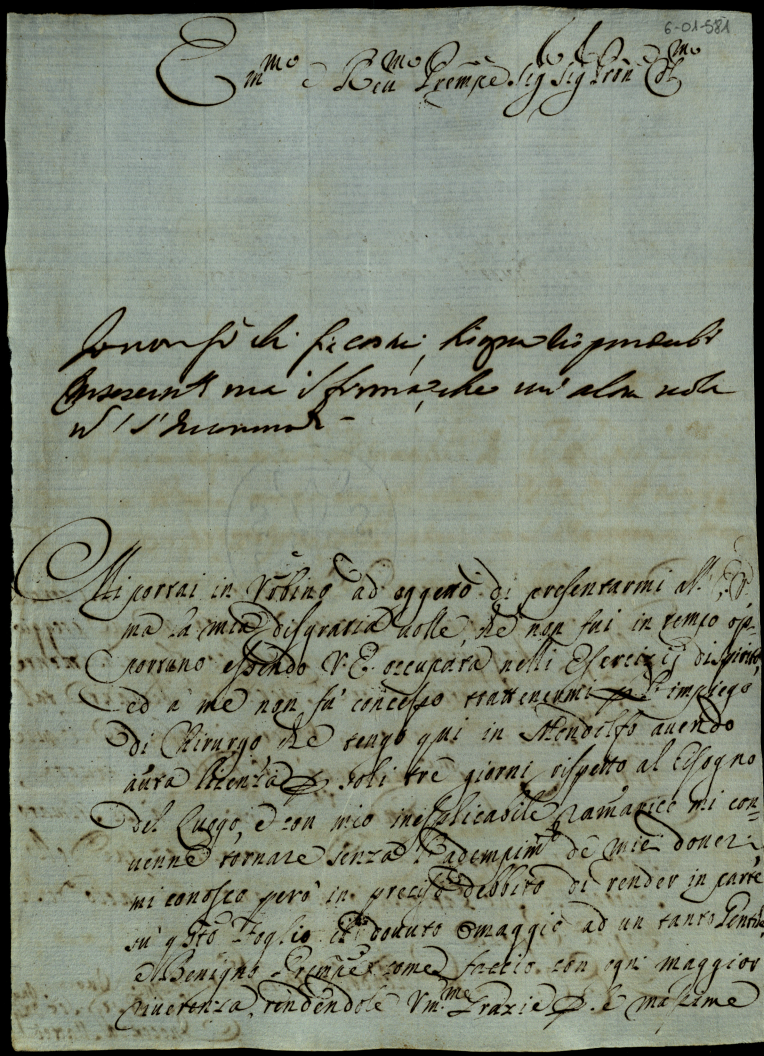 6-01-581
Em.mo e Rev.mo Prenpe Sig Sig Pron Col.mo
ma si firma, che un' altra
Mi portai in Vrbino ad oggetto di presentarmi all' E. V.
ma la mia disgratia uolle, che non fui in tempo op=
portuno essendo V. E. occupata nelli Esercizij di spirito,
ed a me non fù concesso trattenermi p. l' impiego
di Chirurgo che tengo qui in Mondolfo auendo
auta licenza p. soli trè giorni rispetto al bisogno
del luogo, e con mio inesplicabile ramarico mi con=
uenne tornare senza l' adempim.to de miei doueri
mi conosco però in preciso debbito di render in parte
su q.sto Foglio il douuto omaggio ad un tanto
e Benigno Prenpe come faccio con ogni maggior
riuerenza, rendendole Vm.me Grazie p. le massime